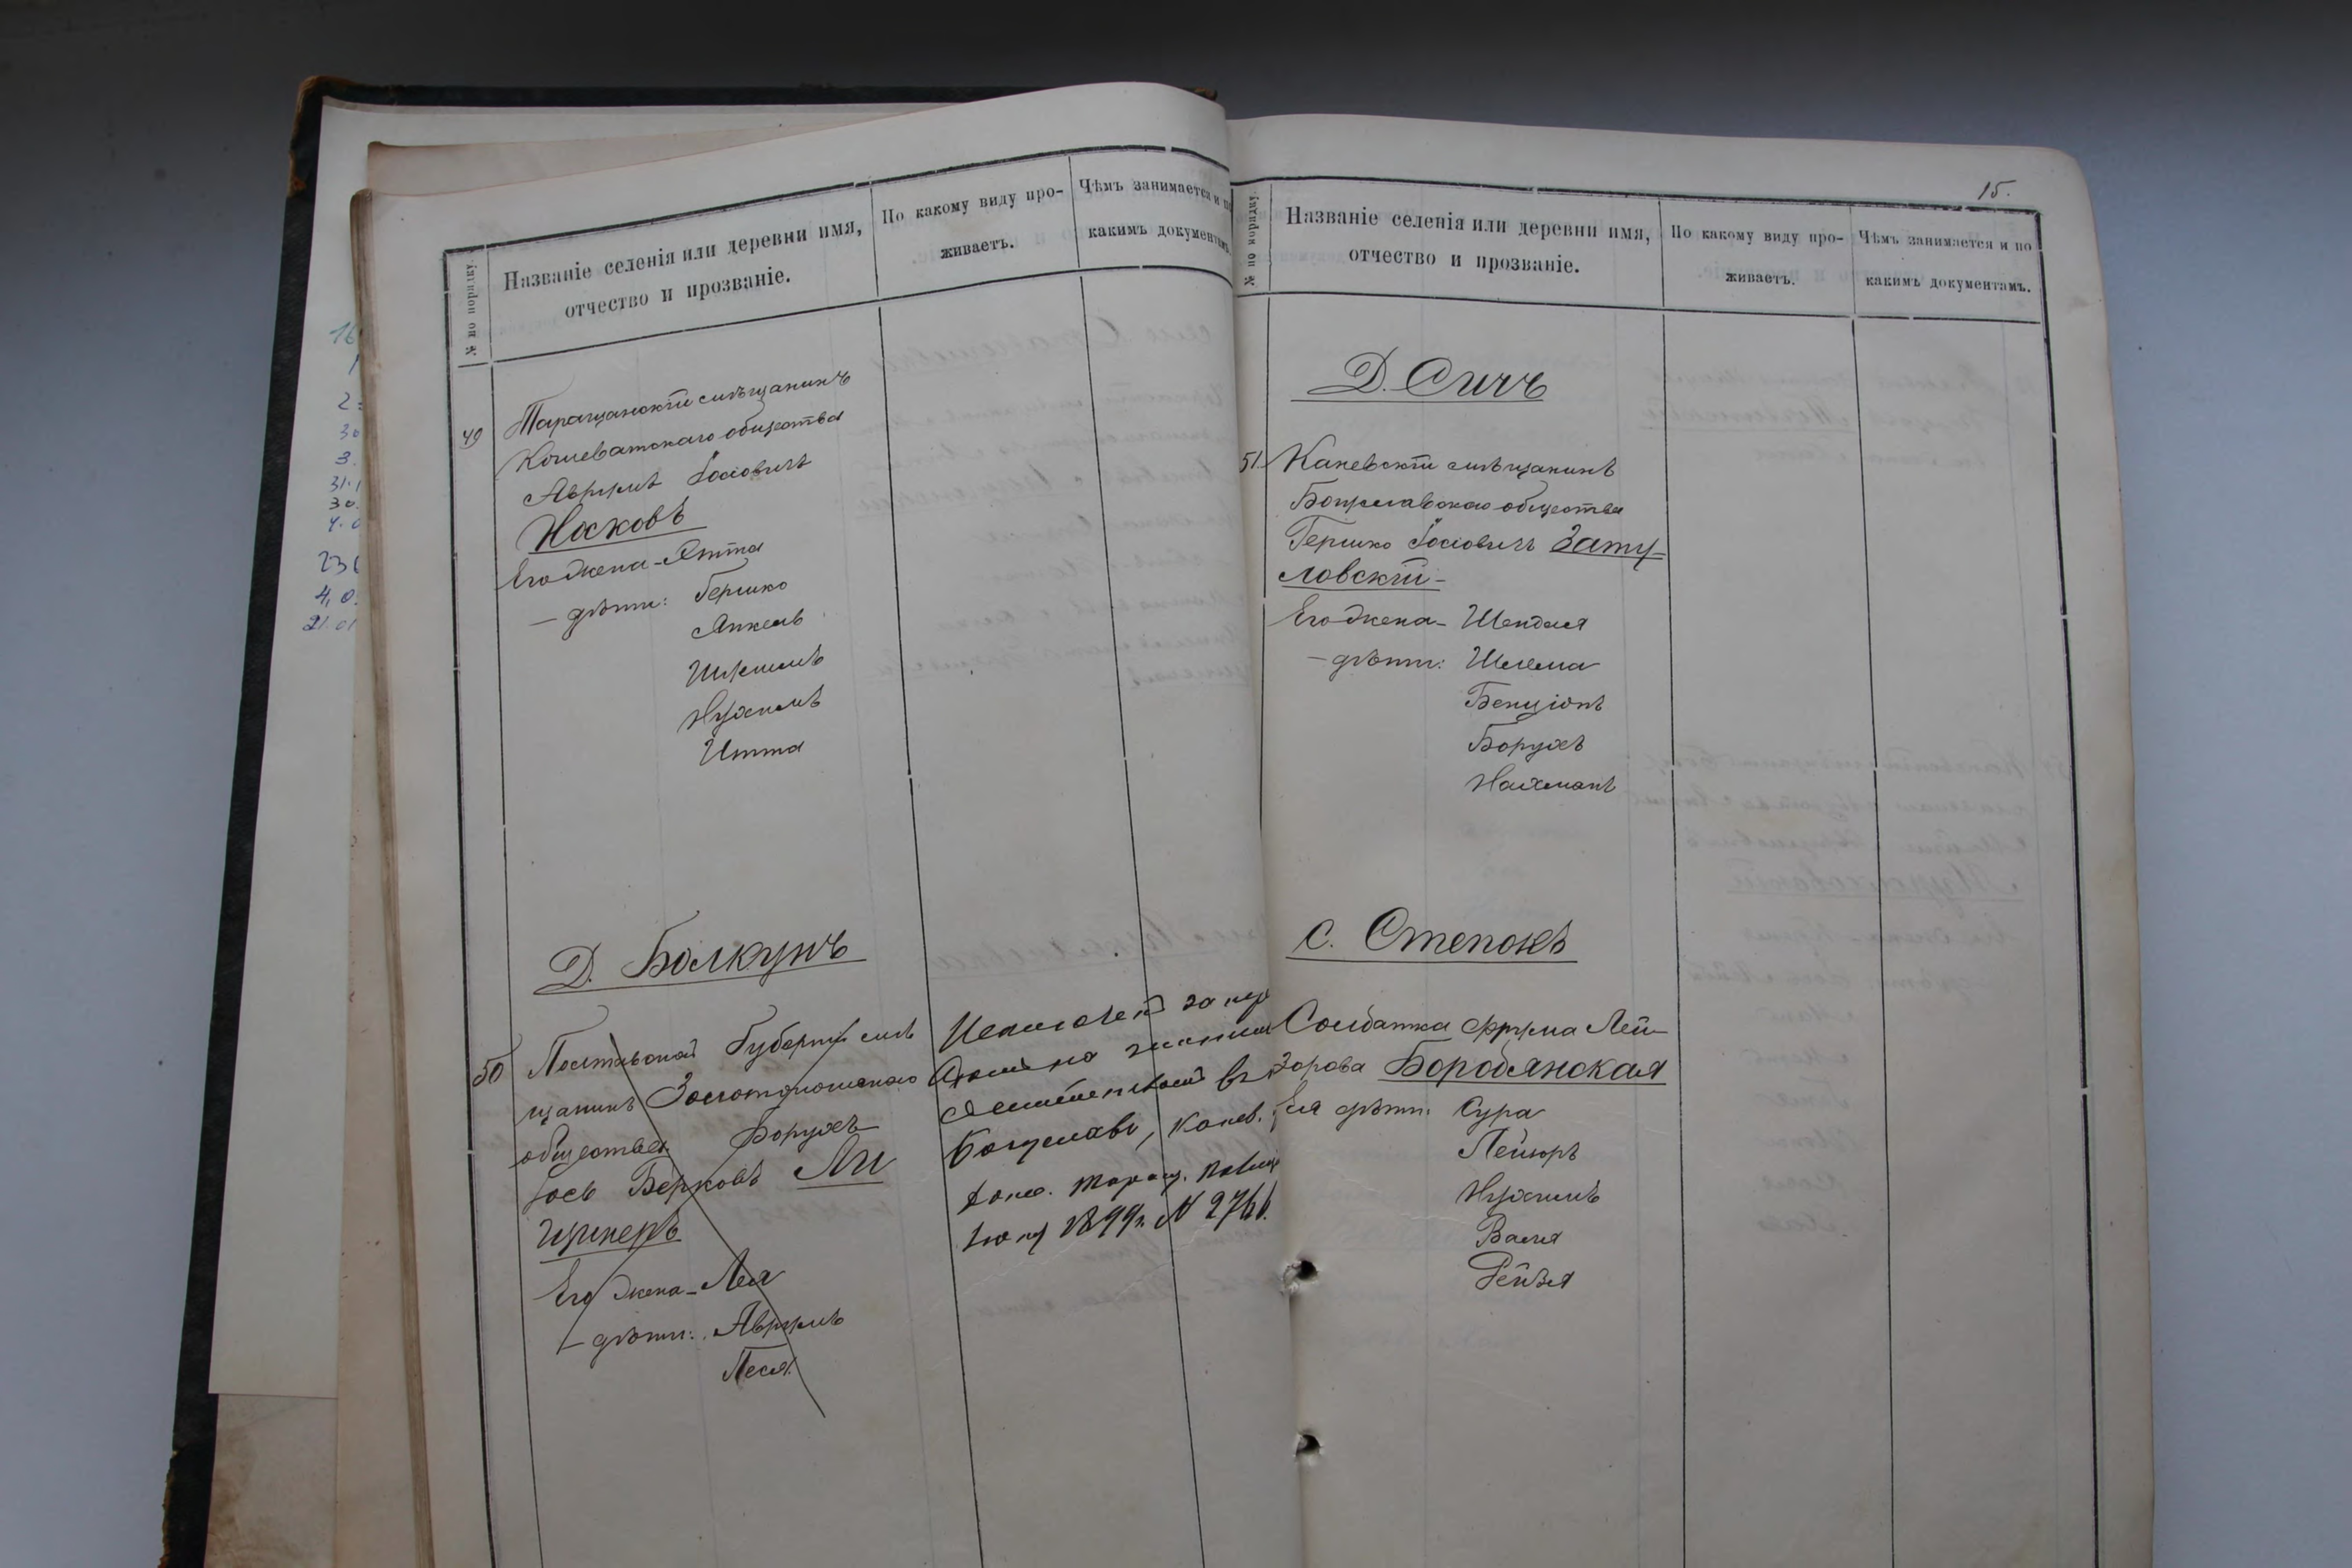 16
1
2
30
3.
31.1
30.
4.0
23
4.0.
21.01
№ по порядку.
Названіе селенія или деревни имя,
отчество и прозваніе.
По какому виду про-
живаетъ.
Чѣмъ занимается и по
какимъ документамъ.
49
Таращанскій мѣщанинъ
Кошеватскаго общества
Аврумъ Іосіовичъ
Носковъ
Его жена - Этта
— дѣти: Гершко
Янкель
Нухимъ
Итта
Д. Болкунъ
50
Полтавской Губерніи мѣ
щанинъ Золотоношскаго
общества Борухъ
Іось Берковъ Ли
щинеръ
Его жена - Лея
— дѣти: Аврумъ
Песя
на жительство въ
Богуславъ, Канев.
Таращ.
1899 г. № 2766.
15.
№ по порядку.
Названіе селенія или деревни имя,
отчество и прозваніе.
По какому виду про-
живаетъ.
Чѣмъ занимается и по
какимъ документамъ.
Д. Сичъ
51.
Каневскій мѣщанинъ
Богуславскаго общества
Гершко Іосіовичъ Зату-
ловскій -
Его жена - Шендля
— дѣти: Шлема
Бенціонъ
Борухъ
Нахманъ
С. Степокъ
Солдатка Фрума Лей-
зорова Бородянская
Ея дѣти: Сура
Лейзоръ
Нухимъ
Рейзя